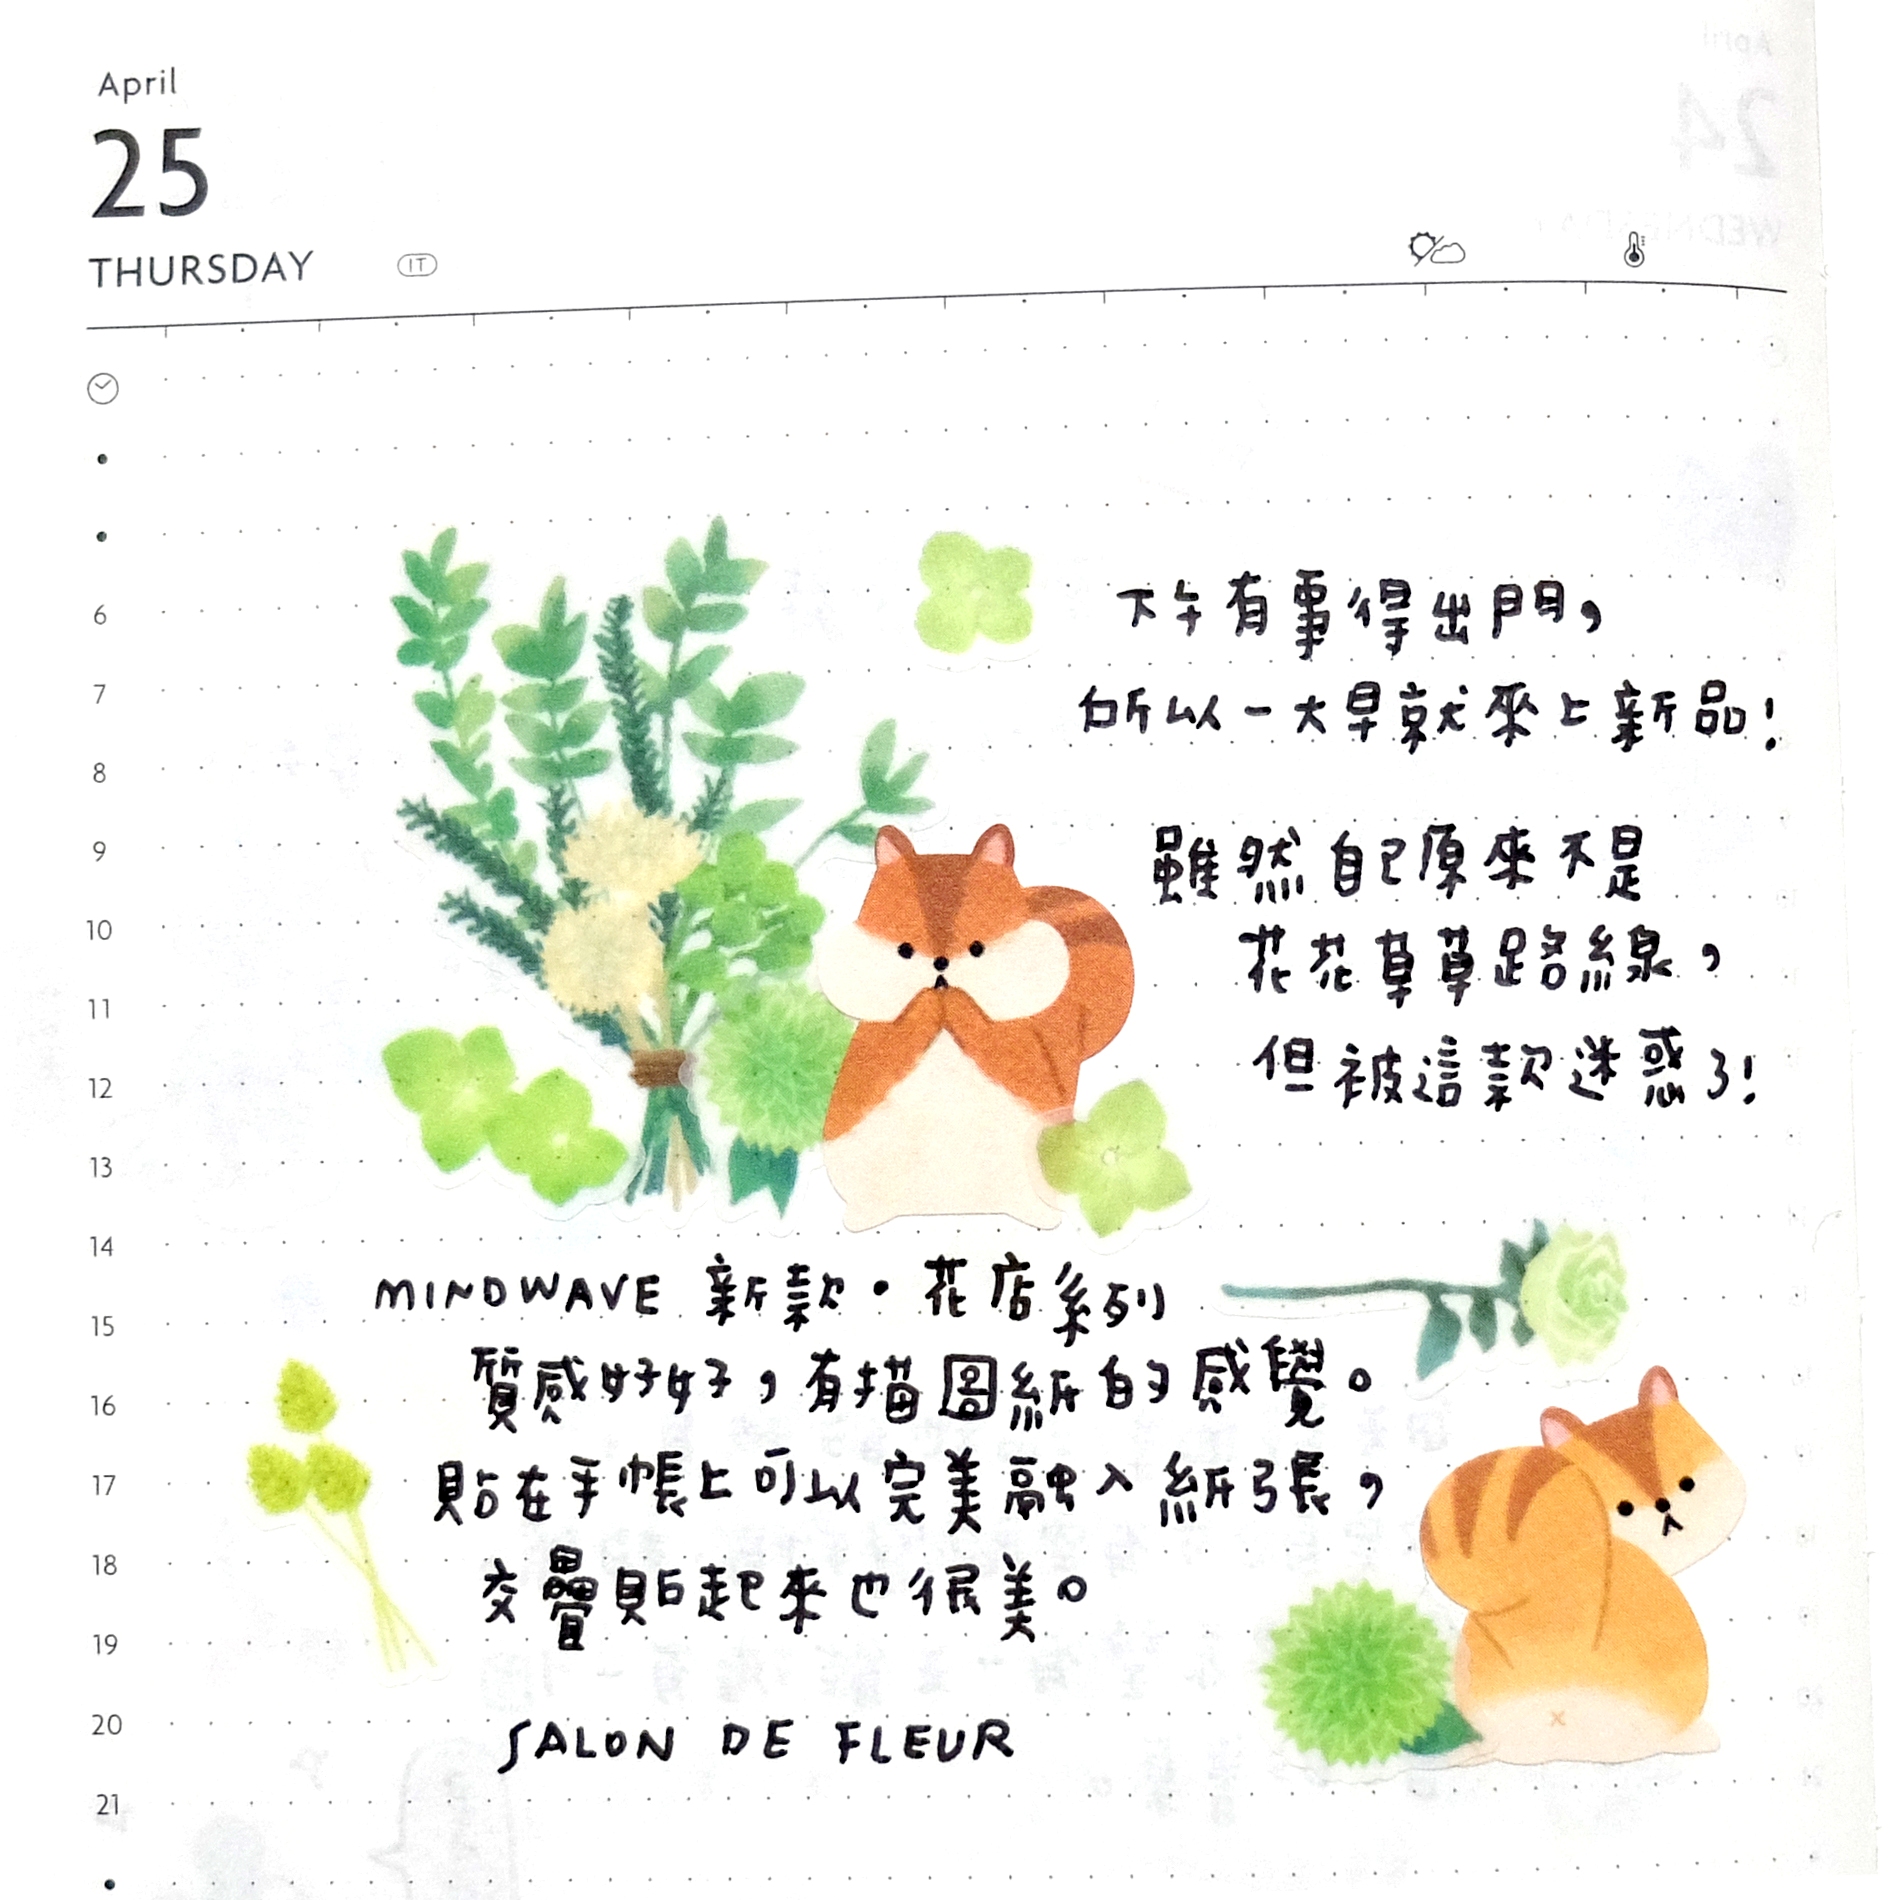 April
25
THURSDAY
IT
下午有事得出門，
所以一大早就來上新品！
雖然自己原來不是
花花草草路線，
但被這款迷惑了！
6
7
8
9
10
11
12
13
14
15
16
17
18
19
20
21
MINDWAVE 新款・花店系列
質感好好，有描圖紙的感覺。
貼在手帳上可以完美融入紙張，
交疊貼起來也很美。
SALON DE FLEUR